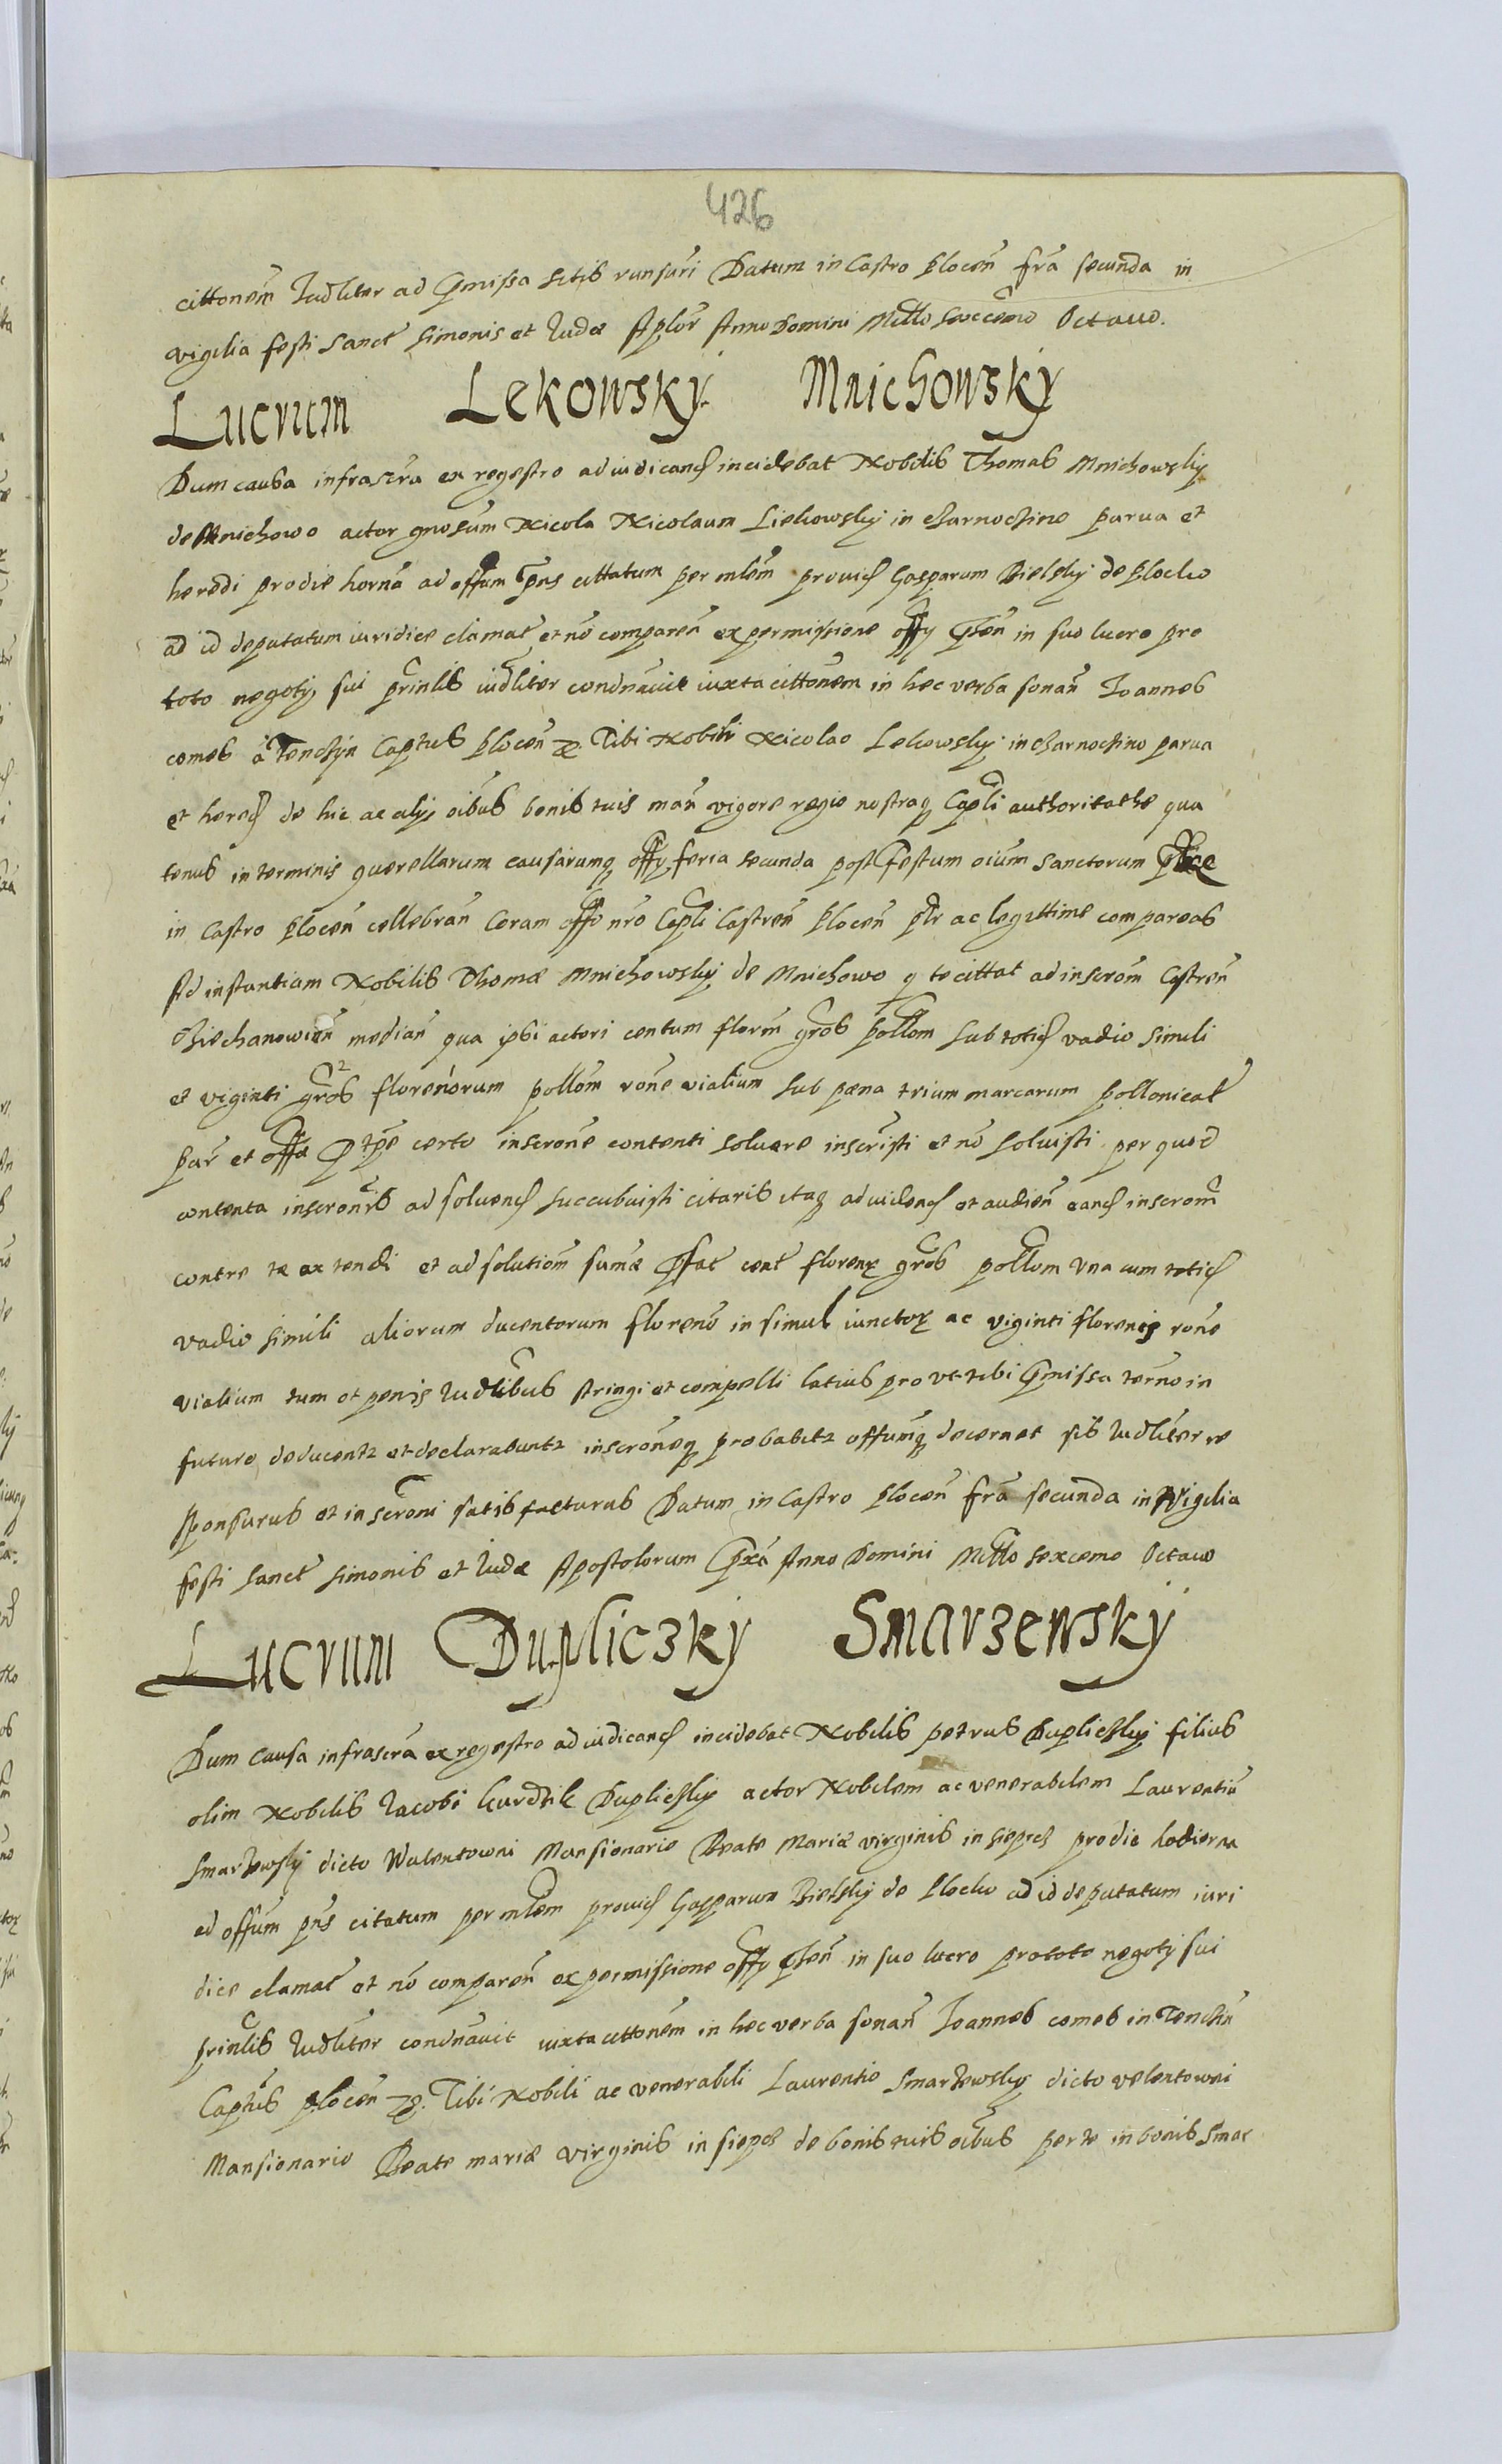 426
cittonem Judliter ad pmissa sitis runsuri Datum in Castro Plocen fra secunda in
vigilia festi Sanct Simonis et Judæ Aplor Anno Domini Millo Sexcemo Octavo.
Lucrum Lekowsky Mnichowsky
Dum causa infrascra ex regestro ad iudicand incidebat Nobilis Thomas Mnichowsky
de Mnichowo actor gnosum Nicola Nicolaum Liekowsky in Charnochino parva et
heredi pro die horna ad offum pns cittatum per mlem provid Gasparum Bielsky de Plocko
ad id deputatum iuridice clamat et no comparen ex permissione offy pten in suo lucro pro
toto negoty sui prinlis iudliter condnavit iuxta cittonem in hec verba sonan Joannes
comes a Tenchyn Captus Plocen &. Tibi Nobili Nicolao Lekowsky in Charnochino parva
et hered de hic ac alys oibus bonis tuis man vigore regio nostraq Capli authoritathe qua
tenus in terminis querellarum causarumq offy feria secunda post festum oium Sanctorum
in Castro Plocen cellebran Coram offo nro Capli Castren Plocen ptr ac legittime compareas
Ad instantiam Nobilis Thomæ Mnichowsky de Mnichowo q te cittat ad inscrom Castren
Chiechanowien median qua ipsi actori centum floren gros pollom sub totid vadio simili
et viginti gros florenorum pollom rone vialium sub pæna trium marcarum pollonicat
par et offo p tpe certo inscrone contenti solvere inscristi et no solvisti per quod
contenta inscronis ad solvend succubuisti citaris itaq ad vidend et audien eand inscrom
contre te extendi et ad solutiom sumæ pfat cent floren gros pollom una cum totid
vadio simili aliorum ducentorum floreno in simul iunctor ac viginti florenis rone
vialium tum et penis Judlibus stringi et compelli latius prout tibi pmissa terno in
futuro deducentr et declarabuntr inscroneq probabitr offumq decernet sis Judliter re
sponsurus et inscroni satisfacturus Datum in Castro Plocen fra secunda in Vigilia
festi Sanct Simonis et Judæ Apostolorum pxa Anno Domini Millo sexcemo Octavo
Lucrum Dupliczky Smarzewsky
Dum Causa infrascra ex regestro ad iudicand incidebat Nobilis petrus Duplichky filius
olim Nobilis Jacobi Kurdzik Duplichky actor Nobilem ac venerabilem Laurentiu
Smarzewsky dicto Walentowni Mansionario Beate Mariæ virginis in Siepcz pro die hodierna
ad offum pns citatum per mlem provid Gasparum Bielsky de Plocko ad id deputatum iuri
dice clamat et no comparen ex permissione offy pten in suo lucro pro toto negoty sui
prinlis Judliter condnavit iuxta cittonem in hec verba sonan Joannes comes in Tenchin
Captus plocen &. Tibi Nobili ac venerabili Laurentio Smarzewsky dicto velentowni
Mansionario Beate mariæ virginis in siepcz de bonis tuis oibus per te in bonis Smar